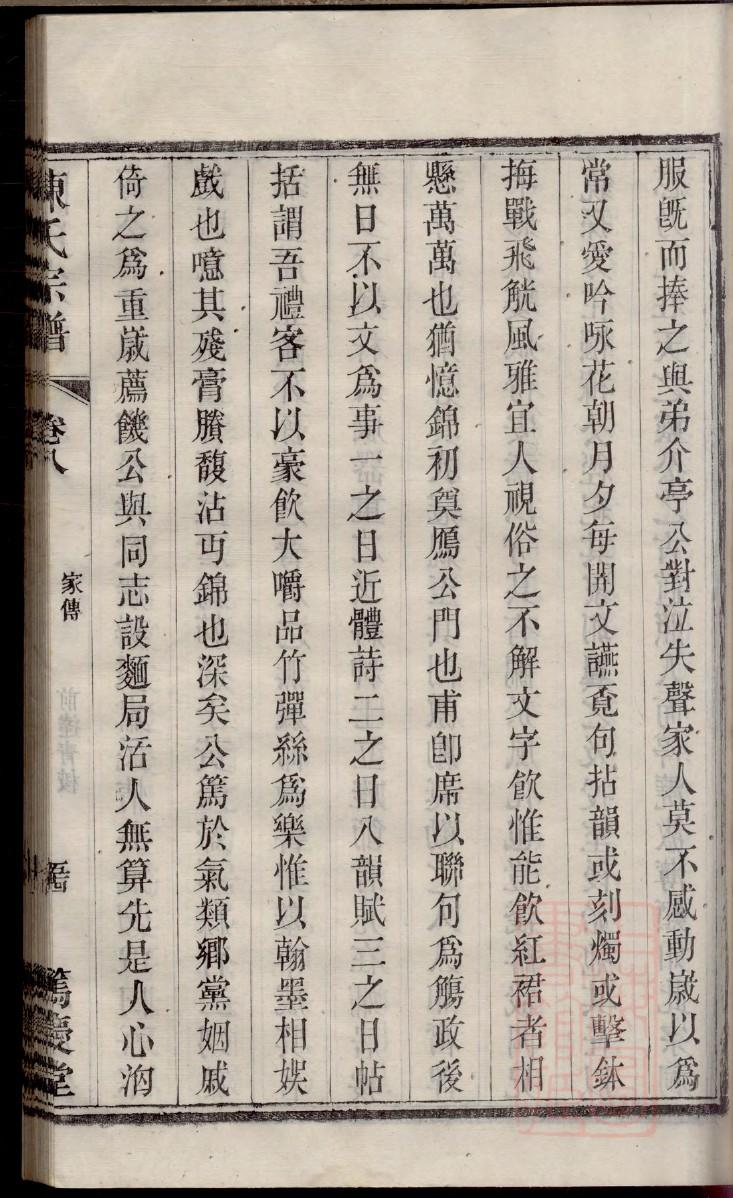 服旣而捧之與弟介亭公對泣失聲家人莫不感動歲以爲
常又愛吟咏花朝月夕每開文讌覔句拈韻或刻燭或擊鉢
拇戰飛觥風雅宜人視俗之不解文字飮惟能飮紅裙者相
懸萬萬也猶憶錦初奠鴈公門也甫卽席以聯句爲觴政後
無日不以文爲事一之日近體詩二之日八韻賦三之日帖
括謂吾禮客不以豪飮大嚼品竹彈絲爲樂惟以翰墨相娛
戲也噫其殘膏賸馥沾丐錦也深矣公篤於氣類鄉黨姻戚
倚之爲重歲薦饑公與同志設麵局活人無算先是人心洶
陳氏宗譜
卷八
家傳
篤慶堂